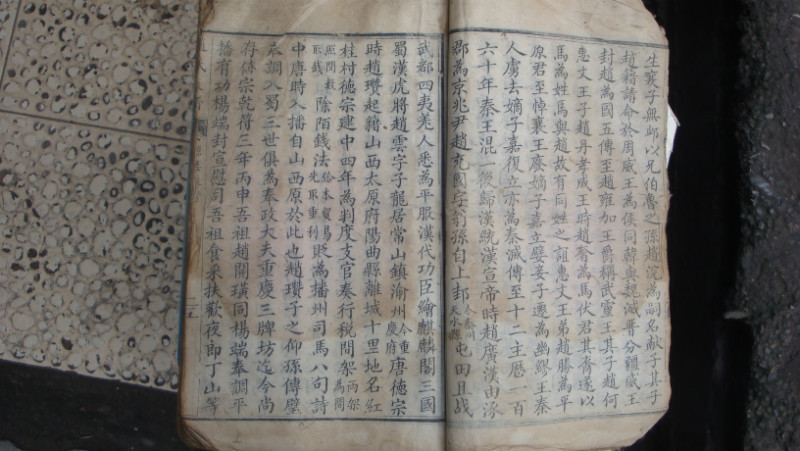 生襄子無卹以兄伯魯之孫趙浣為副名献子其子
趙籍請命於周威王為侯同韓與魏滅晉分疆威王
封趙為國五傳至趙雍加王爵稱武靈王其子趙何
惠文王子趙丹孝成王時趙奢為馬伏君其裔遂以
馬為姓馬與趙故有同姓之誼惠文王弟趙勝為平
原君至悼襄王廢嫡子嘉立嬖妾子遷為幽繆王秦
人虜去嫡子嘉復立亦為秦滅傳至十二主歷一百
六十年秦王混一後歸漢統漢宣帝時趙廣漢由涿
郡為京兆尹趙充國字翁孫自上邽今秦州天水縣屯田且战
武都四夷羌人悉為平服漢代功臣繪麒麟閣三國
蜀漢虎將趙雲字子龍居常山鎮渝州今重慶府唐德宗
時趙瓚起籍山西太原府陽曲縣離城十里地名紅
桂村德宗建中四年為判度支官奏行税間架兩架為間
照間数取錢除陌錢法給本貿易先取重利貶為播州司馬八句詩
中唐時入播自山西原於此也趙瓚子之仰孫傳璧
奉調入蜀三世俱為奉政大夫重慶三牌坊迄今尚
存僖宗乾符三年丙申吾祖趙關璜同楊端奉調平
播有功楊端封宣慰司吾祖食采扶歡夜郎丁山等